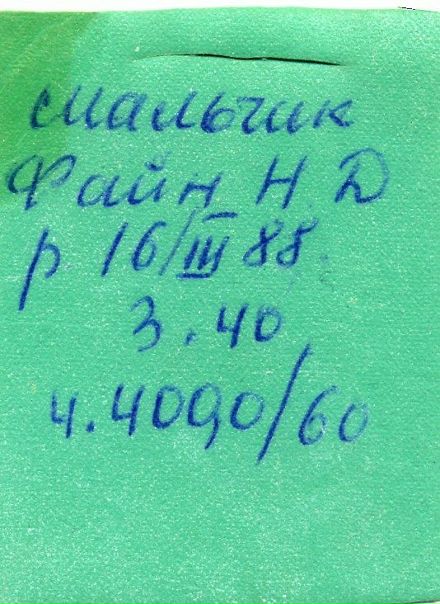 мальчик
Файн Н. Д
р 16/III 88.
3.40
4.4090/60